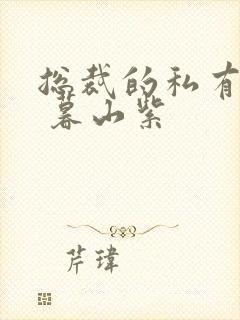 总裁的私有
暮山紫
芹瑋